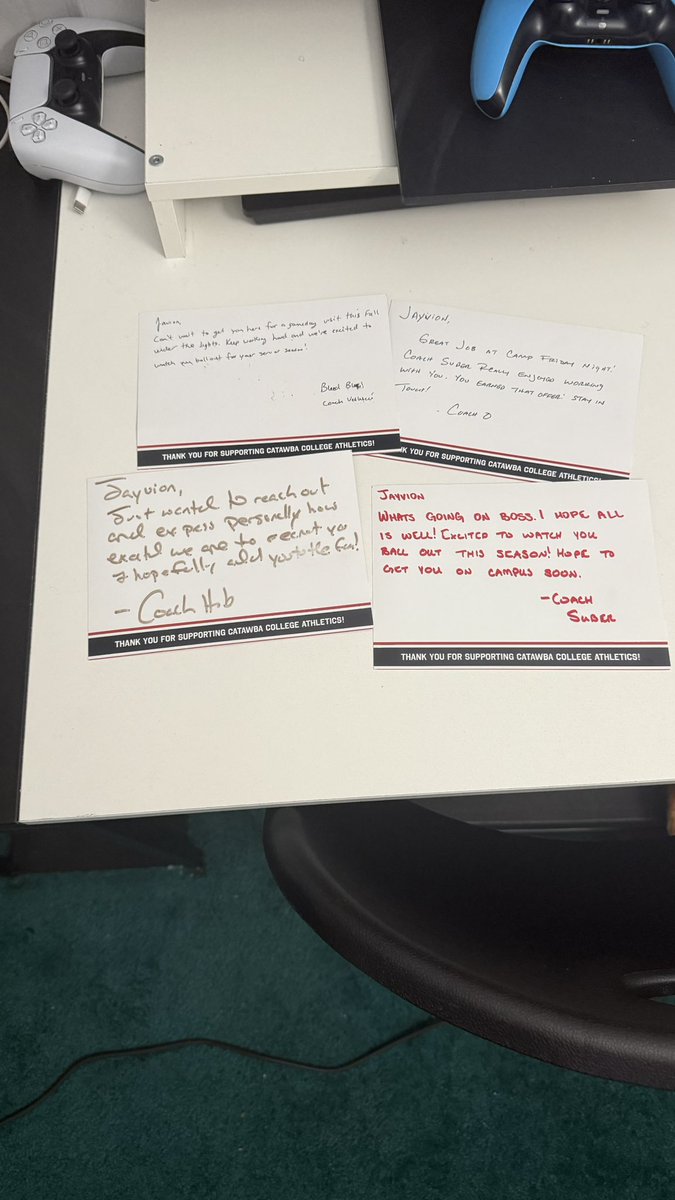 Javion,
Can't wait to get you here for a gameday visit this Fall
under the lights. Keep working hard and we're excited to
watch you ball out for your senior season!
Coach
THANK YOU FOR SUPPORTING CATAWBA COLLEGE ATHLETICS!
JAYVION,
GREAT JOB AT CAMP FRIDAY NIGHT!
COACH SUBER REALLY ENJOYED WORKING
WITH YOU. YOU EARNED THAT OFFER! STAY IN
TOUCH!
- COACH D
NK YOU FOR SUPPORTING CATAWBA COLLEGE ATHLETICS!
Jayvion,
Just wanted to reach out
and express personally how
excited we are to recruit you
& hopefully add you to the fam!
- Coach Hub
THANK YOU FOR SUPPORTING CATAWBA COLLEGE ATHLETICS!
JAYVION
WHATS GOING ON BOSS! I HOPE ALL
IS WELL! EXCITED TO WATCH YOU
BALL OUT THIS SEASON! HOPE TO
GET YOU ON CAMPUS SOON.
-COACH
SUBER
THANK YOU FOR SUPPORTING CATAWBA COLLEGE ATHLETICS!